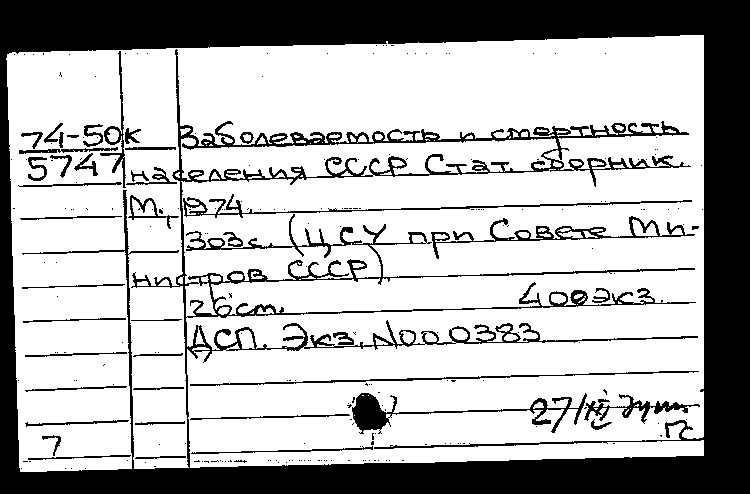 74-50к Заболеваемость и смертность
5747 населения СССР. Стат. сборник.
М., 1974.
303с. (ЦСУ при Совете Ми-
нистров СССР)
26см. 400экз.
ДСП. Экз. №000383
27/XII
7